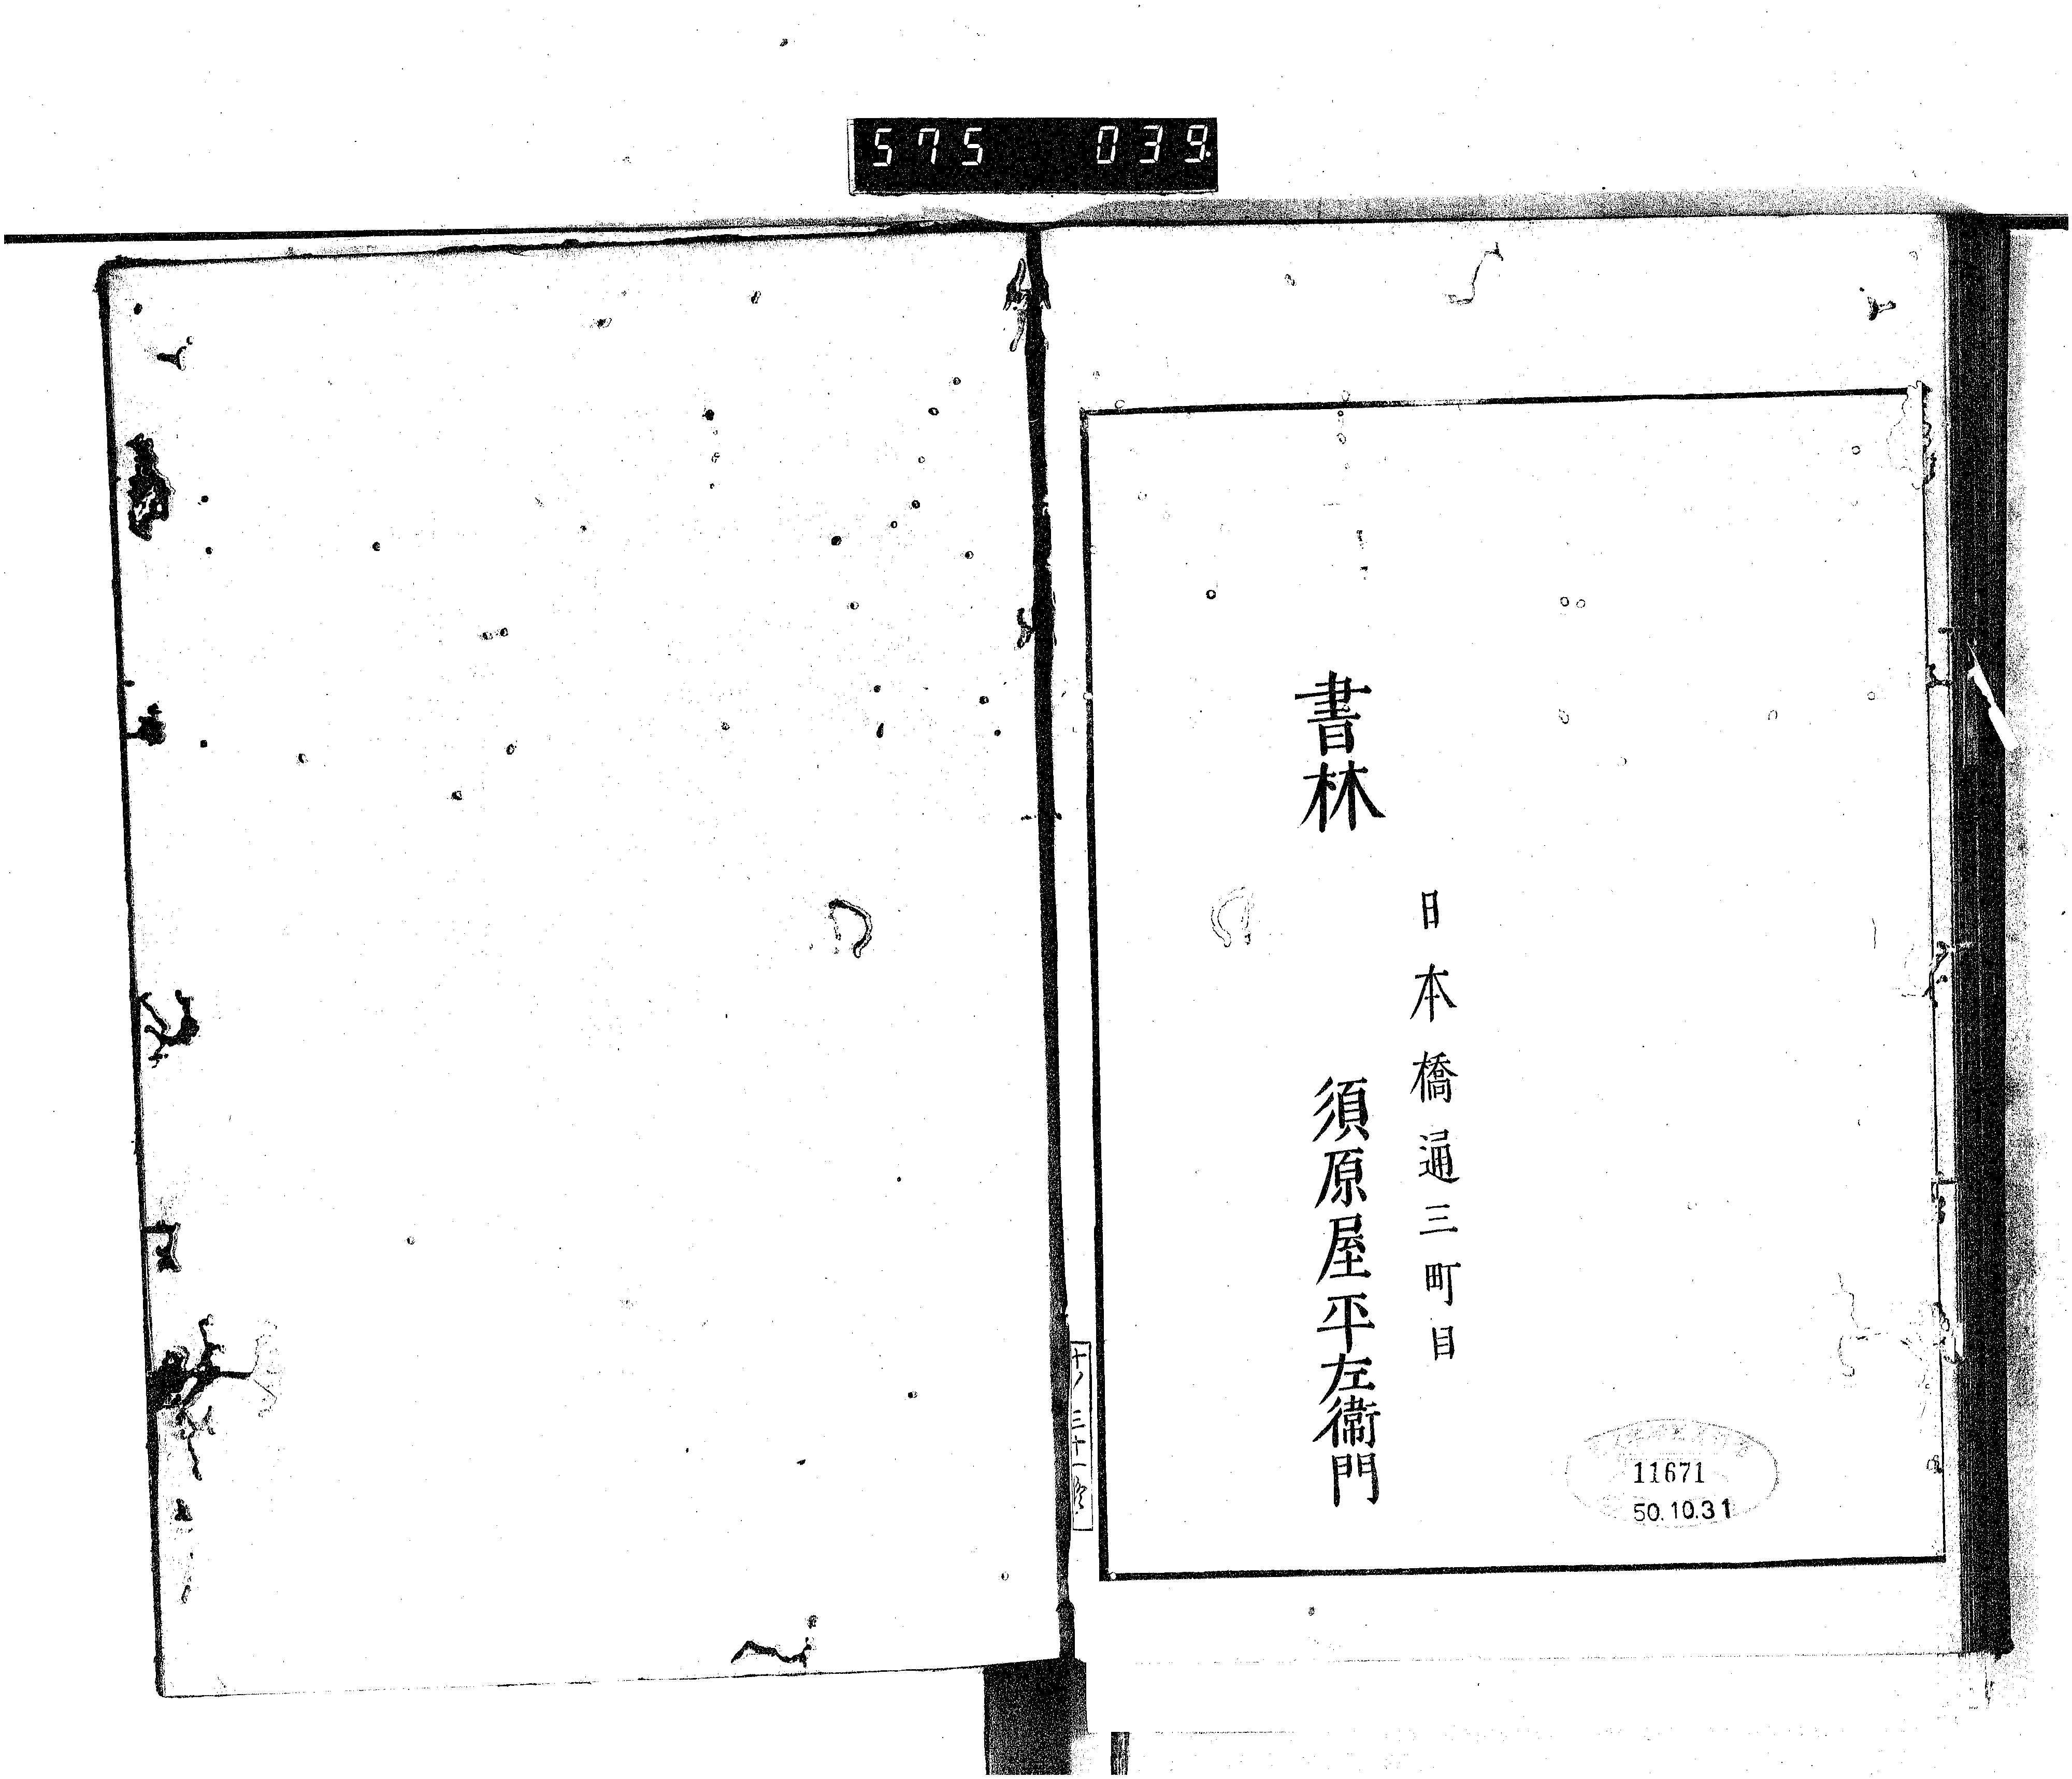 575 039
日本橋通三町目
書林 須原屋平左衞門
11671
50.10.31
十ノ 三十一終